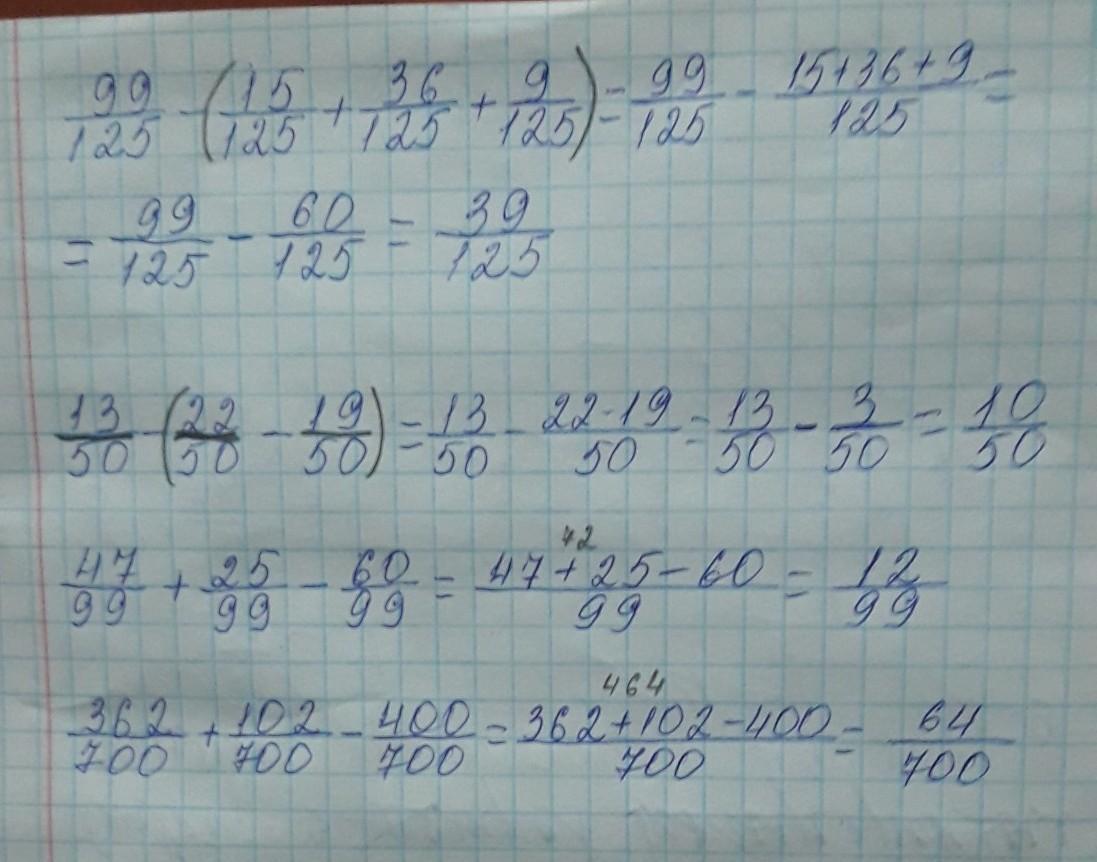 99/125 - (15/125 + 36/125 + 9/125) = 99/125 - (15+36+9)/125 =
= 99/125 - 60/125 = 39/125
13/50 - (22/50 - 19/50) = 13/50 - (22-19)/50 = 13/50 - 3/50 = 10/50
72
47/99 + 25/99 - 60/99 = (47+25-60)/99 = 12/99
464
362/700 + 102/700 - 400/700 = (362+102-400)/700 = 64/700